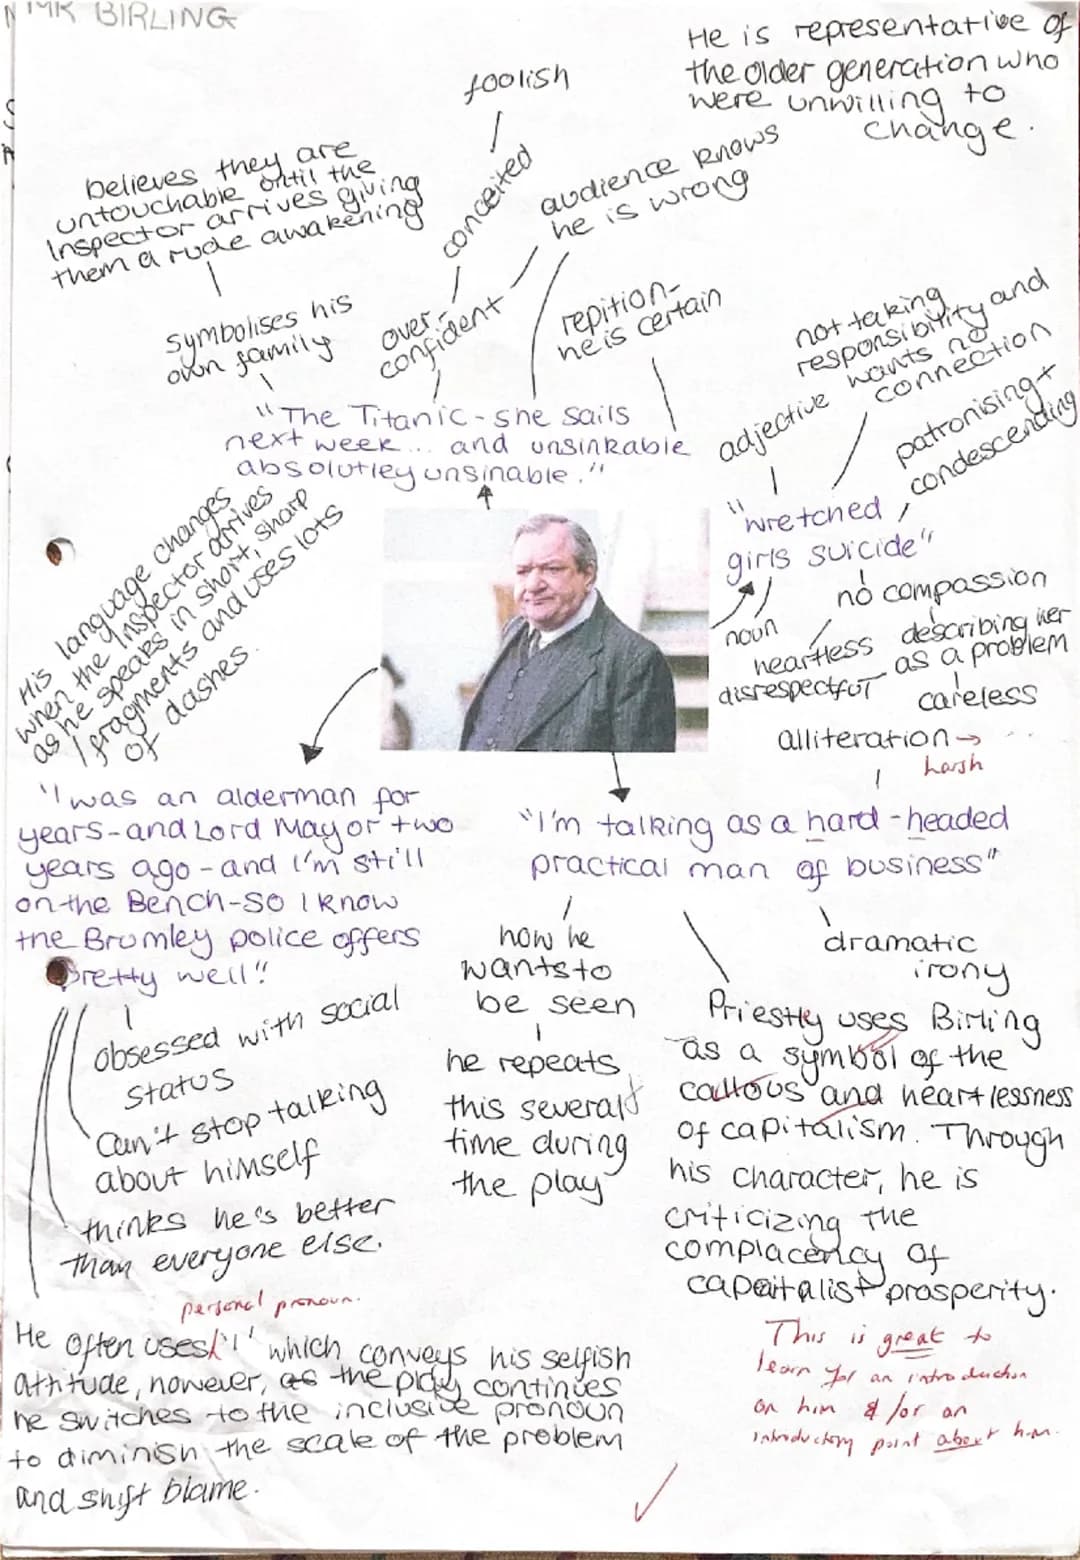 MR BIRLING
He is representative of
the older generation who
were unwilling to
change.
foolish
conceited
over-
confident
audience knows
he is wrong
believes they are
untouchable until the
Inspector arrives giving
them a rude awakening
symbolises his
own family
repition-
he is certain
"The Titanic - she sails
next week... and unsinkable
absolutley unsinable."
not taking
responsibility and
wants no
connection
adjective
patronising +
condescending
"wretched
girls suicide"
noun
no compassion
heartless
disrespectful
describing her
as a problem
careless
His language changes
when the Inspector arrives
as he speaks in short, sharp
fragments and uses lots
of dashes.
alliteration →
harsh
"I was an alderman for
years - and Lord Mayor two
years ago - and I'm still
on the Bench - so I know
the Brumley police offers
pretty well!"
"I'm talking as a hard-headed
practical man of business"
how he
wants to
be seen
he repeats
this several
time during
the play
dramatic
irony
Priestly uses Birling
as a symbol of the
callous and heartlessness
of capitalism. Through
his character, he is
criticizing the
complacency of
capaitalist prosperity.
obsessed with social
status
Can't stop talking
about himself
thinks he's better
than everyone else.
personal pronoun.
He often uses 'I' which conveys his selfish
attitude, however, as the play continues
he switches to the inclusive pronoun
to diminish the scale of the problem
and shift blame.
This is great to
learn for an introduction
on him & /or an
introductory point about him.